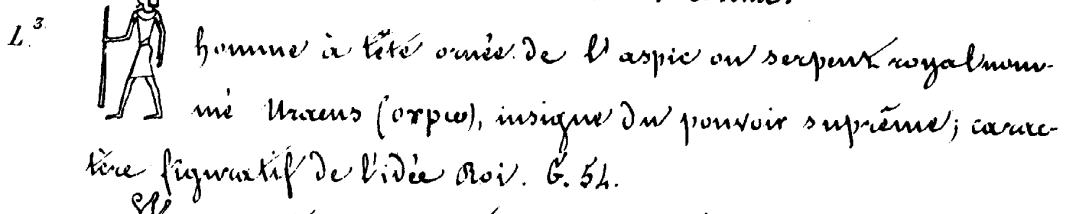 L.³ homme à tête ornée de l'aspic ou serpent royal nom-
mé Uraeus (ⲟⲩⲣⲱ), insigne du pouvoir suprême; carac-
tère figuratif de l'idée Roi. G. 54.